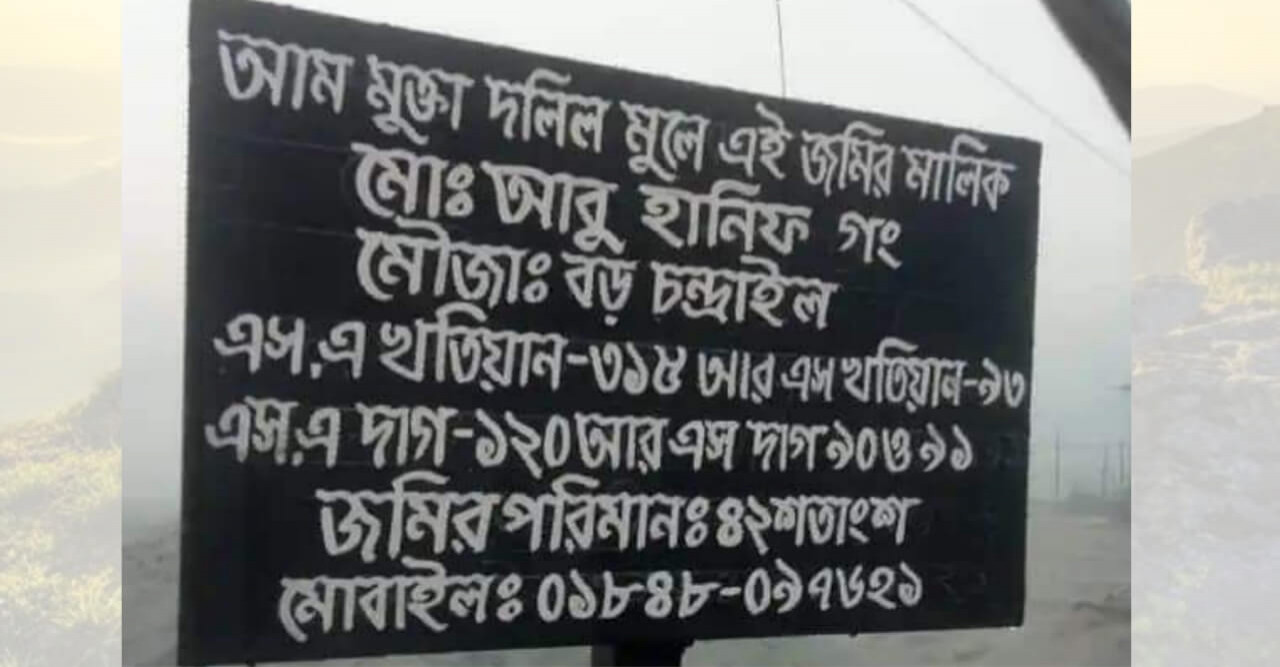 আম মুক্তা দলিল মুলে এই জমির মালিক
মোঃ আবু হানিফ গং
মৌজাঃ বড় চন্দ্রাইল
এস.এ খতিয়ান-৩১৫ আর এস খতিয়ান-৯৩
এস.এ দাগ-১২০ আর এস দাগ ৯০ ও ৯১
জমির পরিমানঃ ৪২ শতাংশ
মোবাইলঃ ০১৮৪৮-০৯৭৬২১